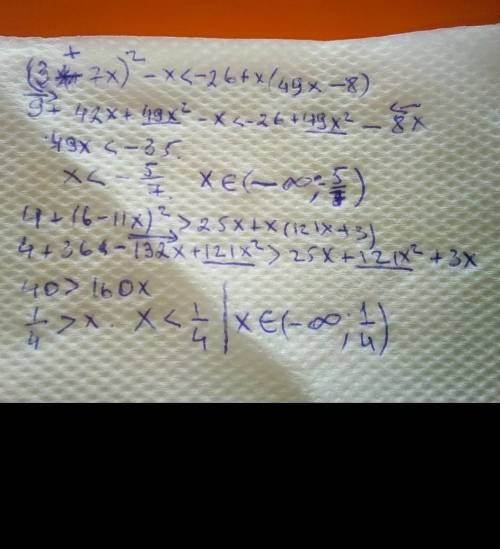 (3+7x)² - x < -26 + x(49x - 8)
9 + 42x + 49x² - x < -26 + 49x² - 8x
49x < -35.
x < -5/7. x ∈ (-∞; -5/7)
4 + (6 - 11x)² > 25x + x(121x + 3)
4 + 36 - 132x + 121x² > 25x + 121x² + 3x
40 > 160x
1/4 > x. x < 1/4 | x ∈ (-∞; 1/4)